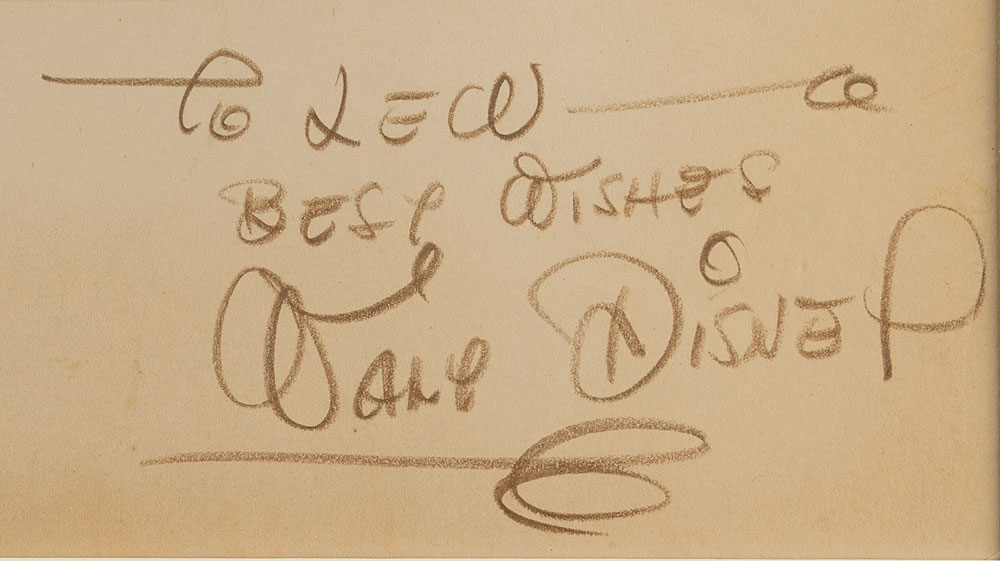 To LEW
BEST WISHES
WALT DISNEY